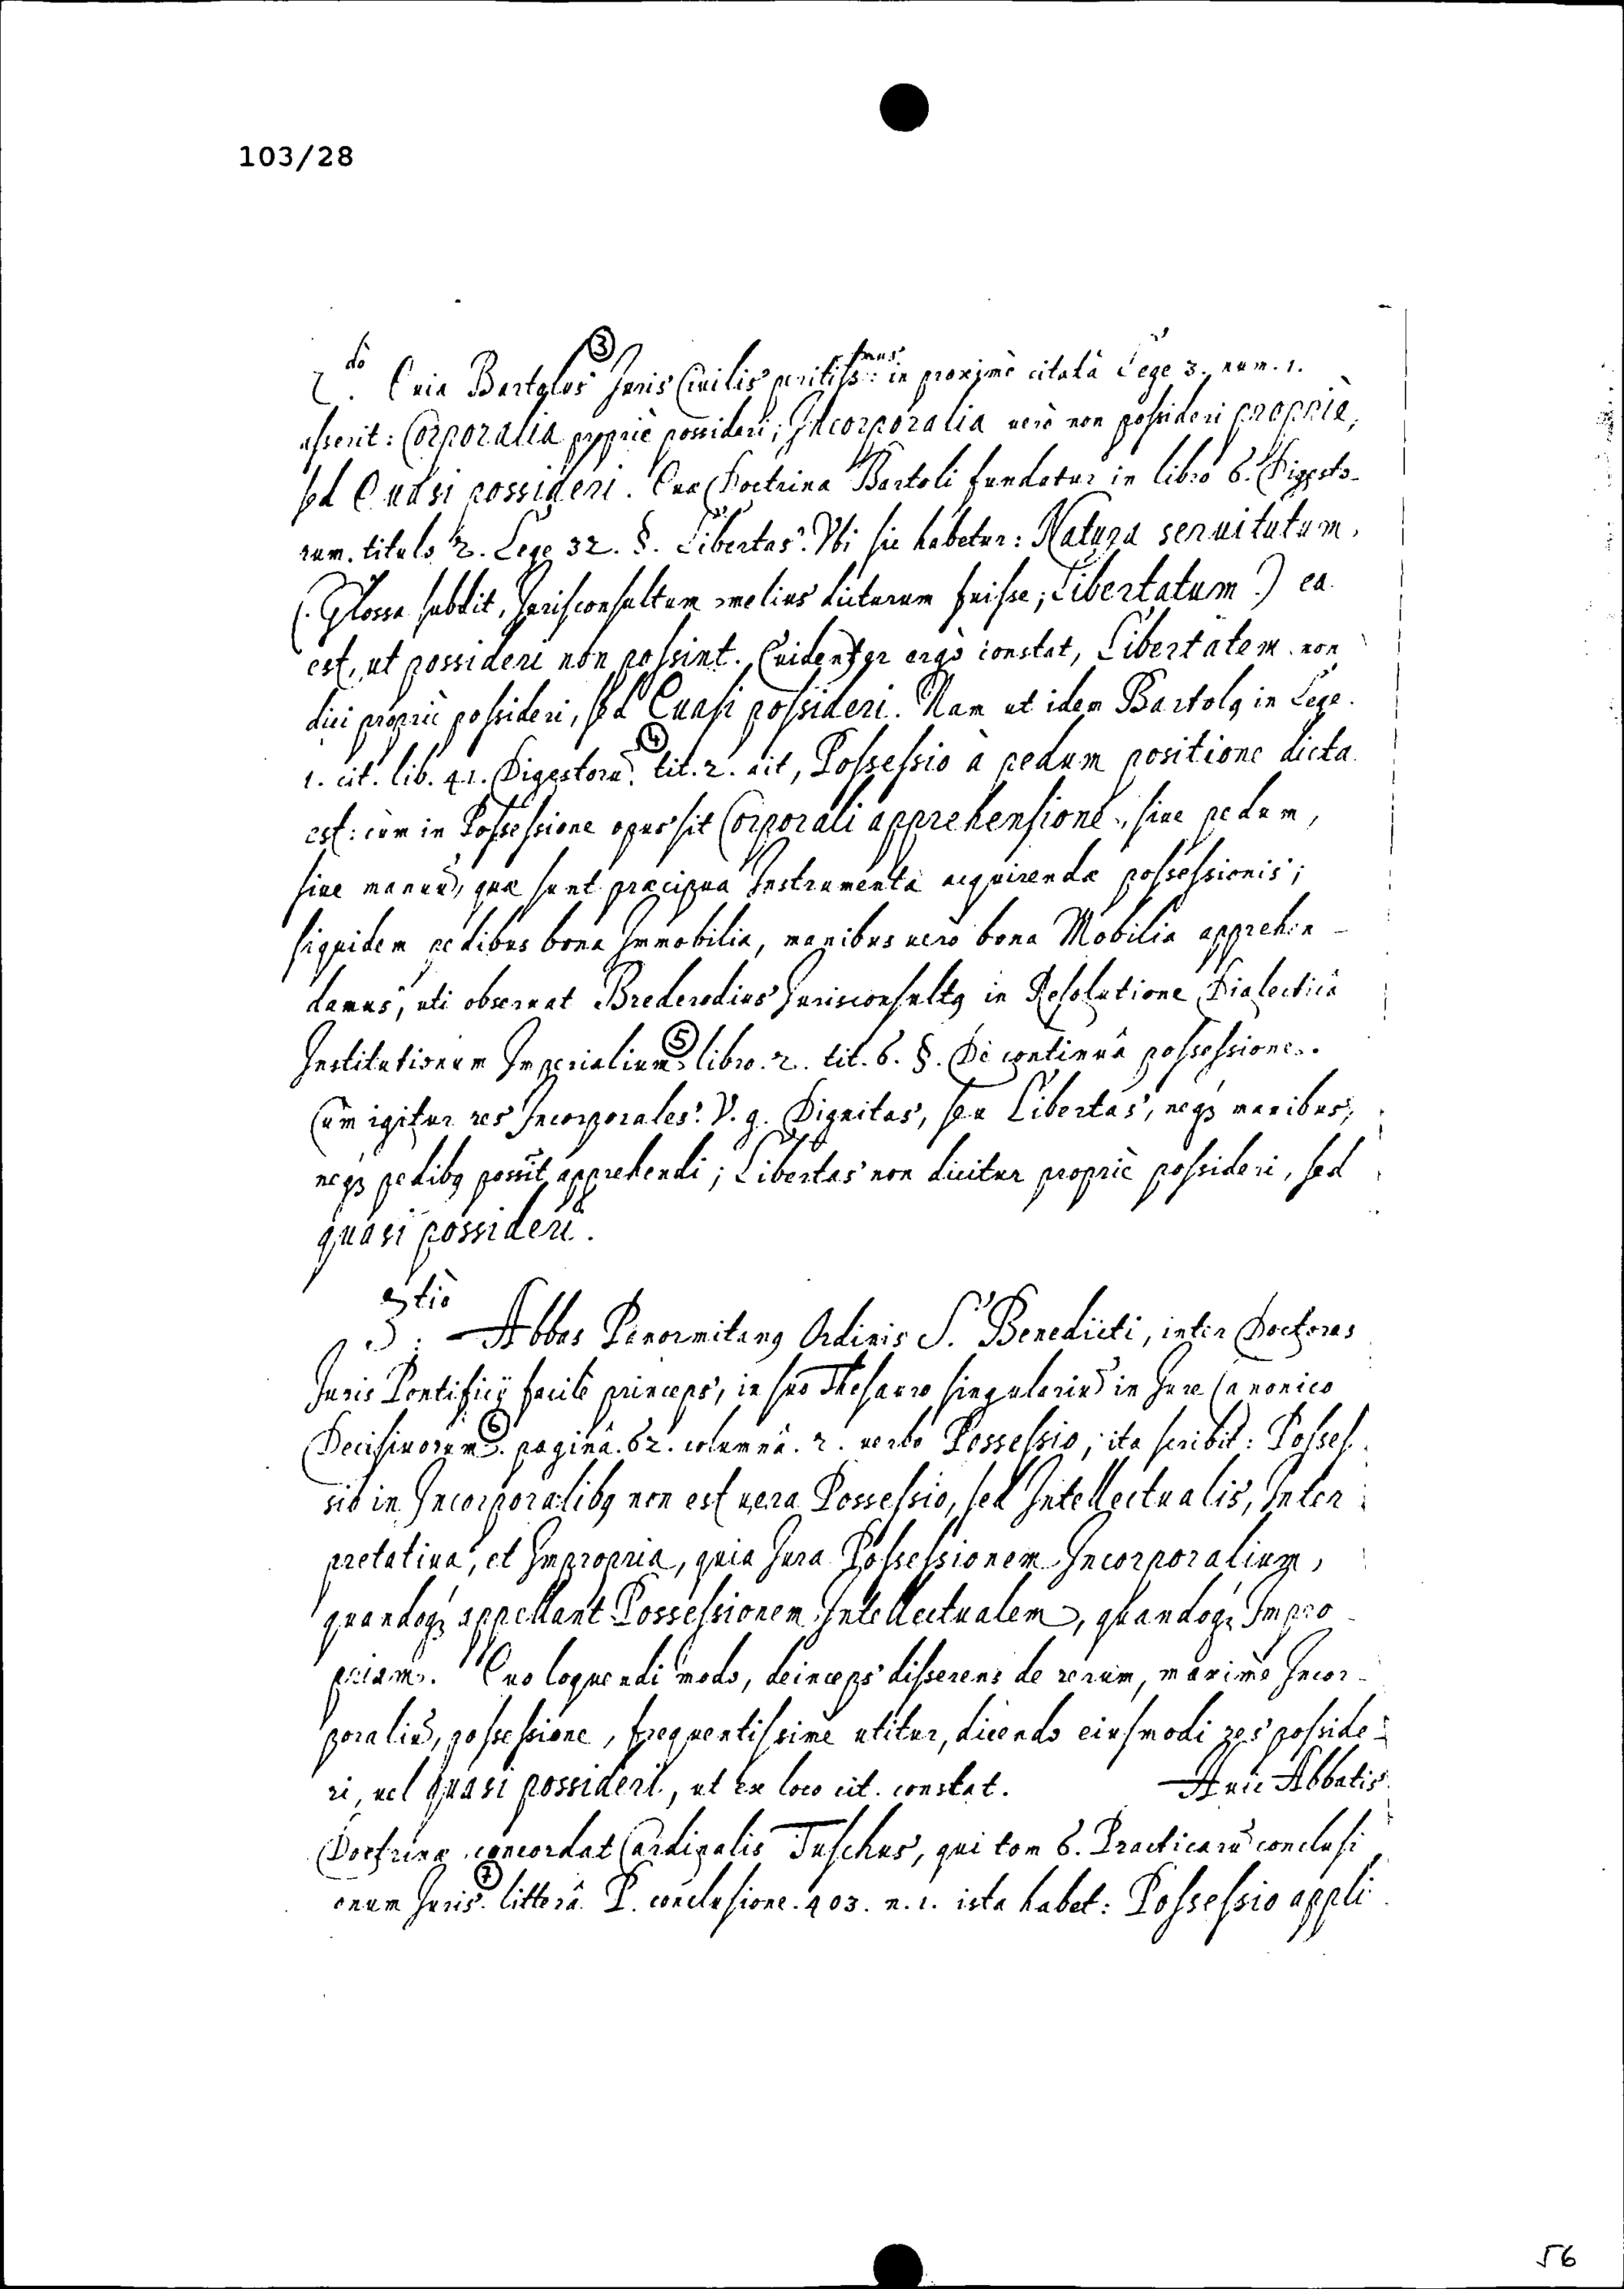 103/28
2.do Quia Bartolus ③ Juris Civilis peritiss:imus in proximè citatâ Lege 3. num. 1.
asserit: Corporalia propriè possideri; Incorporalia verò non possideri propriè,
sed Quasi possideri. Quæ Doctrina Bartoli fundatur in libro 6. Digesto-
rum. titulo 2. Lege 32. §. Libertas. Ubi sic habetur: Natura servitutum,
(. Glossa subdit, Jurisconsultum melius dicturum fuisse; Libertatum .) ea
est, ut possideri non possint. Evidenter ergò constat, Libertatem non
dici propriè possideri, sed Quasi possideri. Nam ut idem Bartolꝰ in Lege.
1. cit. lib. 41. Digestorũ ④ tit. 2. ait, Possessio à pedum positione dicta
est: cùm in Possessione opus sit Corporali apprehensione, sive pedum,
sive manuũ, quæ sunt præcipua Instrumenta acquirendæ possessionis;
siquidem pedibus bona Immobilia, manibus verò bona Mobilia apprehen-
damus, uti observat Brederodius Jurisconsultꝰ in Resolutione Dialecticâ
Institutionum Imperialium ⑤ libro. 2. tit. 6. §. De continuâ possessione.
Cùm igitur res Incorporales. V. g. Dignitas, seu Libertas, neqꝫ manibus,
neqꝫ pedibꝰ possit apprehendi; Libertas non dicitur propriè possideri, sed
quasi possideri.
3.tiò Abbas Panormitanꝰ Ordinis S. Benedicti, inter Doctores
Juris Pontificij facilè princeps, in suo Thesauro singulariũ in Jure Canonico
Decisivorum ⑥. paginâ. 62. columnâ. 2. verbo Possessio, ita scribit: Posses-
sio in Incorporalibꝰ non est vera Possessio, sed Intellectualis, Inter-
pretativa, et Impropria, quia Jura Possessionem Incorporalium,
quandoqꝫ appellant Possessionem Intellectualem, quandoqꝫ Impro-
priam. Quo loquendi modo, deinceps disserens de rerum, maximè Incor-
poraliũ, possessione, frequentissimè utitur, dicendo eiusmodi res posside-
ri, vel quasi possideri, ut ex loco cit. constat. Huic Abbatis
Doctrinæ concordat Cardinalis Tuschus, qui tom 6. Practicarũ conclusi
onum Juris ⑦. litterâ P. conclusione. 403. n. 1. ista habet: Possessio appli
56